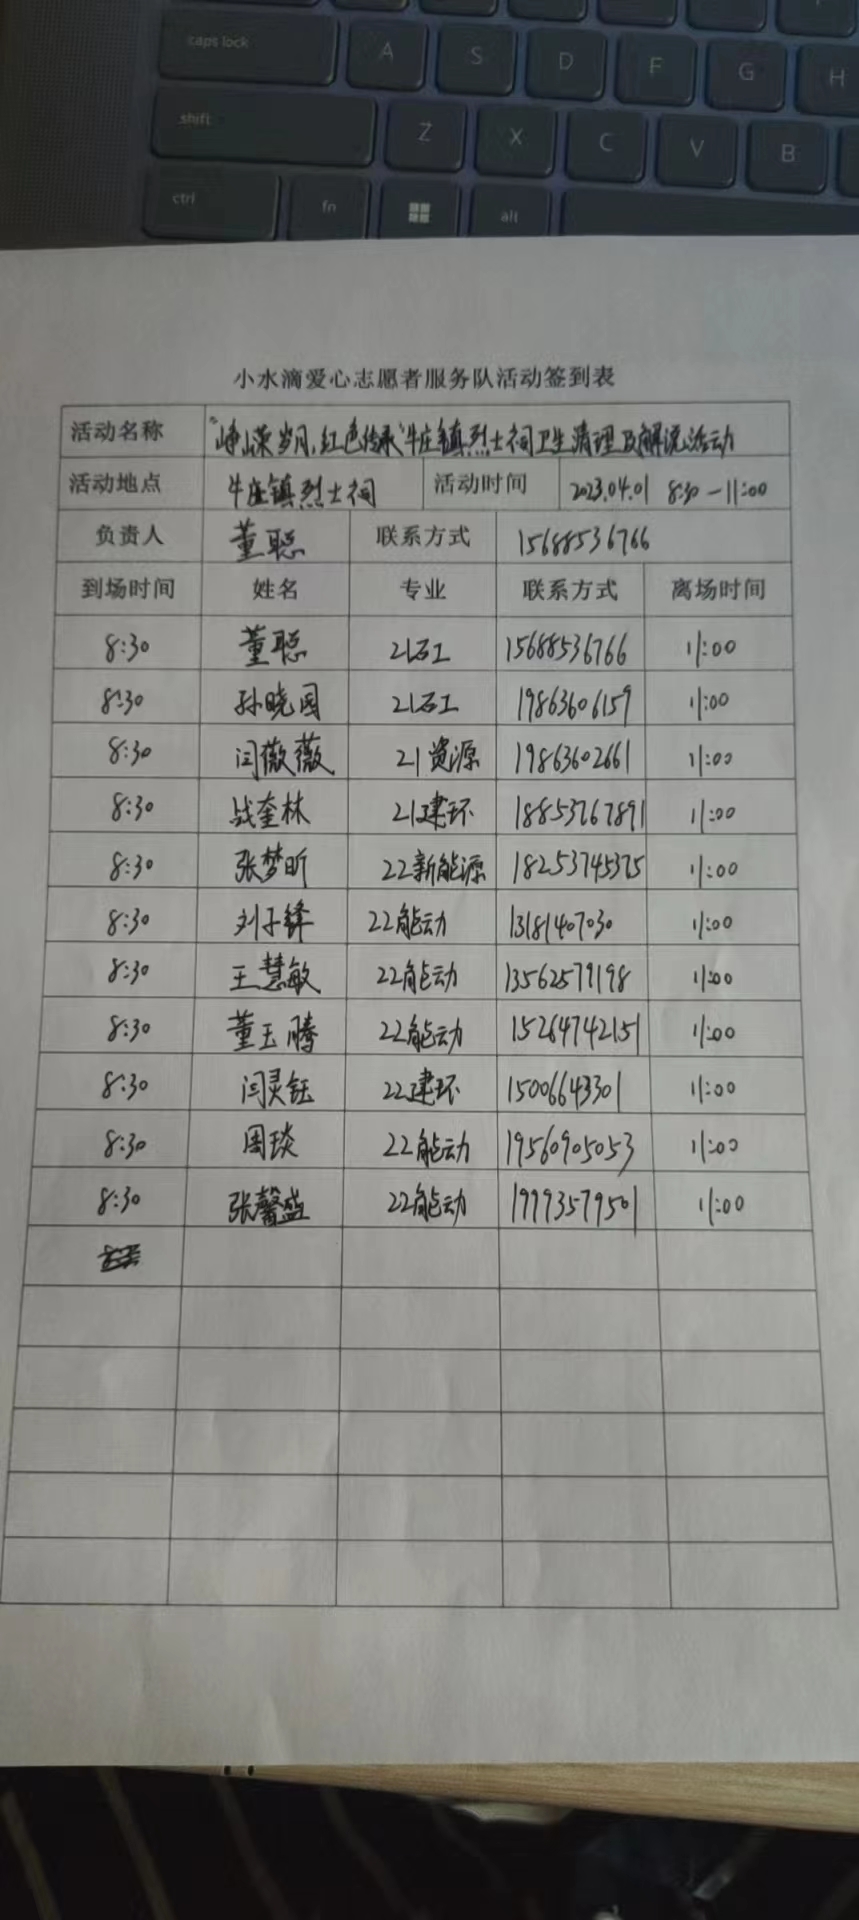 caps lock A S D F G H
shift Z X C V B
ctrl fn alt
小水滴爱心志愿者服务队活动签到表
活动名称 "峥嵘岁月,红色传承"牛庄镇烈士祠卫生清理及解说活动
活动地点 牛庄镇烈士祠 活动时间 2023.04.01 8:30-11:00
负责人 董聪 联系方式 15688536766
到场时间 姓名 专业 联系方式 离场时间
8:30 董聪 21石工 15688536766 11:00
8:30 孙晓国 21石工 19863606159 11:00
8:30 闫薇薇 21资源 19863602661 11:00
8:30 战奎林 21建环 18853767891 11:00
8:30 张梦昕 22新能源 18253745375 11:00
8:30 刘子锋 22能动 13181407030 11:00
8:30 王慧敏 22能动 13562579198 11:00
8:30 董玉腾 22能动 15264742151 11:00
8:30 闫灵钰 22建环 15006643301 11:00
8:30 周琰 22能动 19560905053 11:00
8:30 张馨盛 22能动 19993579501 11:00